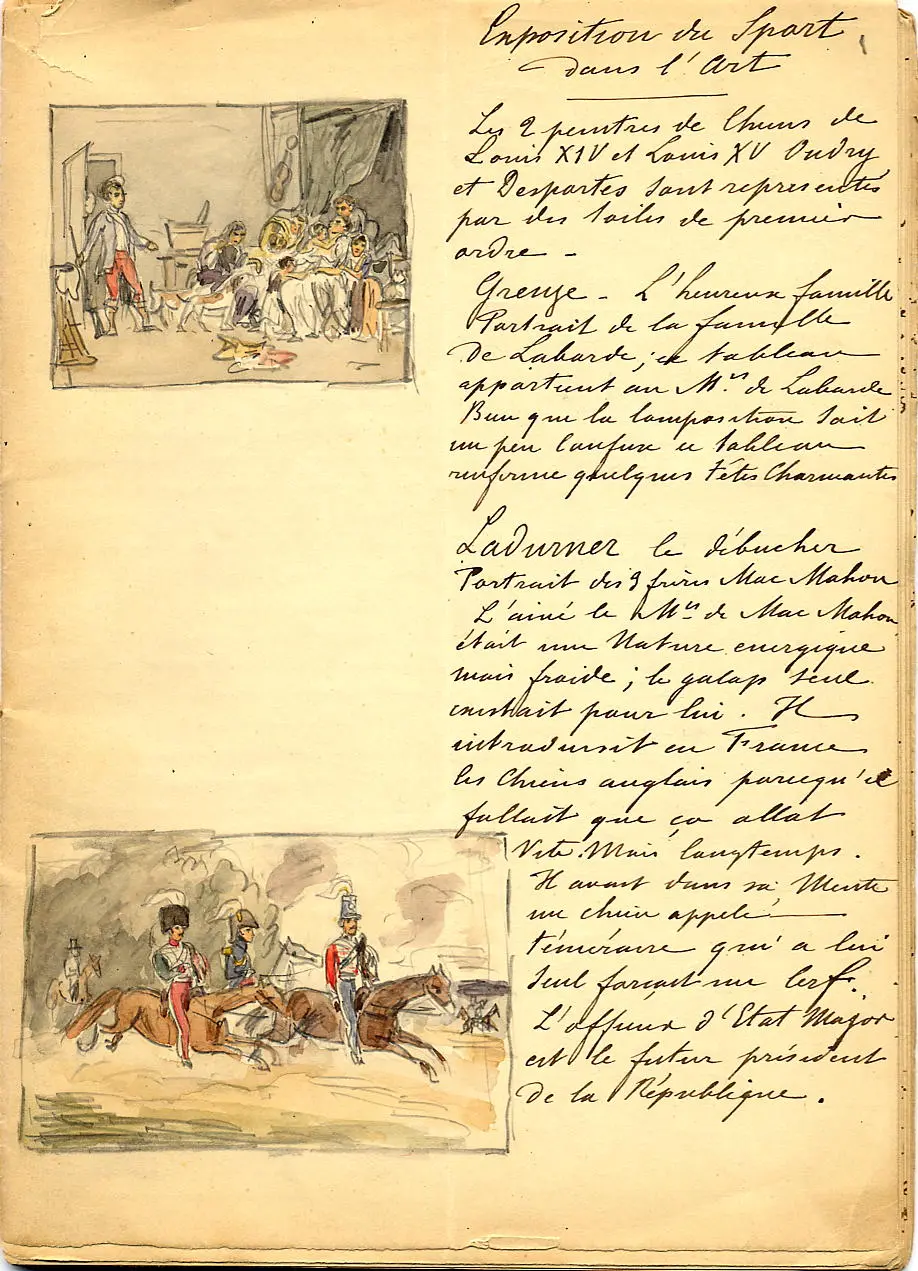 Exposition du Sport
dans l'Art
Les 2 peintres de Chiens de
Louis XIV et Louis XV Oudry
et Desportes sont représentés
par des toiles de premier
ordre -
Greuze - L'heureuse famille
Portrait de la famille
de Laborde ; ce tableau
appartient au Mis de Laborde
Bien que la composition soit
un peu confuse ce tableau
renferme quelques Têtes Charmantes
Ladurner le débucher
Portrait des 3 frères Mac Mahon
L'ainé le Mis de Mac Mahon
était une Nature energique
mais froide ; le galop seul
existait pour lui. Il
introduisit en France
les Chiens anglais parcequ'il
fallait que ça allat
Vite. Mais longtemps.
Il avait dans sa Meute
un chien appelé
Téméraire qui a lui
seul forçait un Cerf.
L'officier d'Etat Major
est le futur président
de la République.